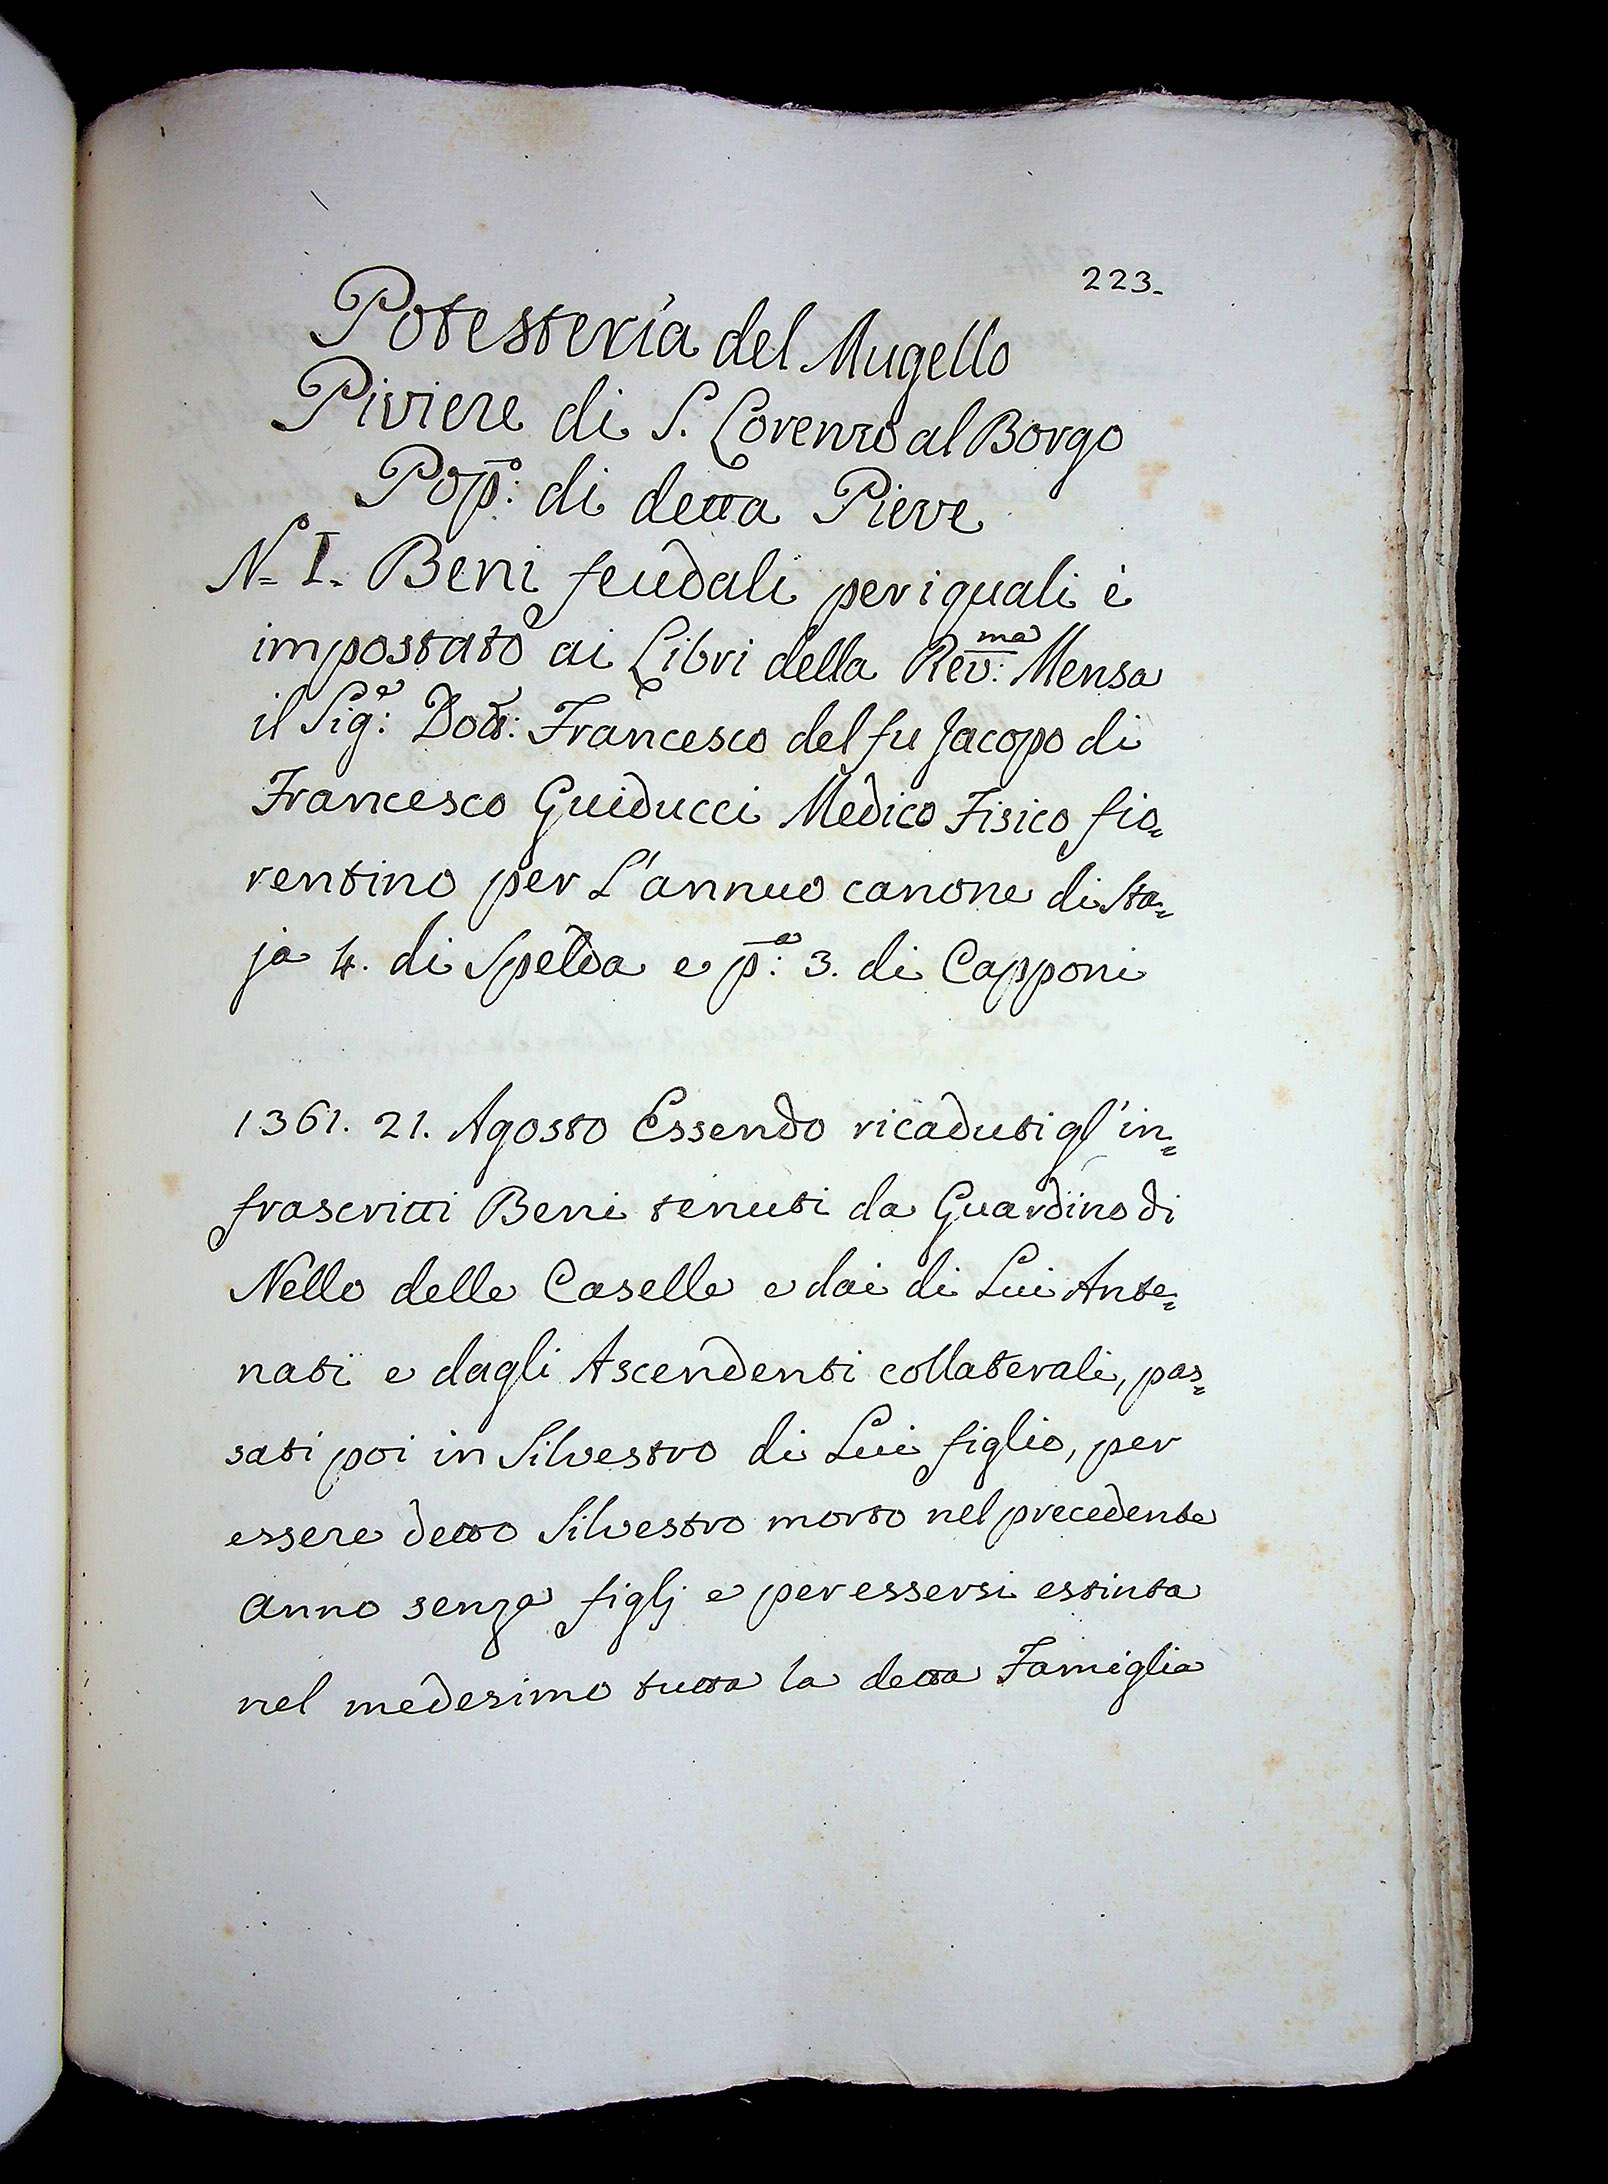 223.
Potesteria del Mugello
Piviere di S. Lorenzo al Borgo
Pop.º: di detta Pieve
N.º I. Beni feudali per i quali è
impostato ai Libri della Rev:ma Mensa
il Sig.e: Dott.e: Francesco del fu Jacopo di
Francesco Guiducci Medico Fisico fio=
rentino per L'annuo canone di Sta=
ja 4. di Spelda e p.a: 3. di Capponi
1361. 21. Agosto Essendo ricaduti gl'in=
frascritti Beni tenuti da Guardino di
Nello delle Caselle e dai di Lui Ante=
nati e dagli Ascendenti collaterali, pas=
sati poi in Silvestro di Lui figlio, per
essere detto Silvestro morto nel precedente
anno senza figlj e per essersi estinta
nel medesimo tutta la detta Famiglia